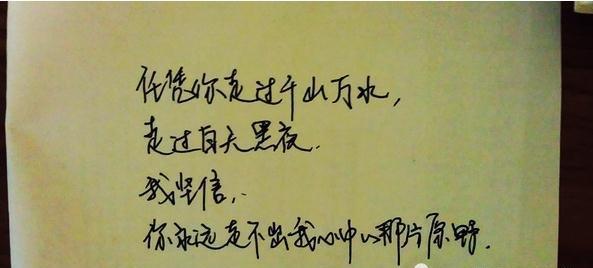 任凭你走过千山万水，
走过白天黑夜.
我坚信，
你永远走不出我心中的那片原野.